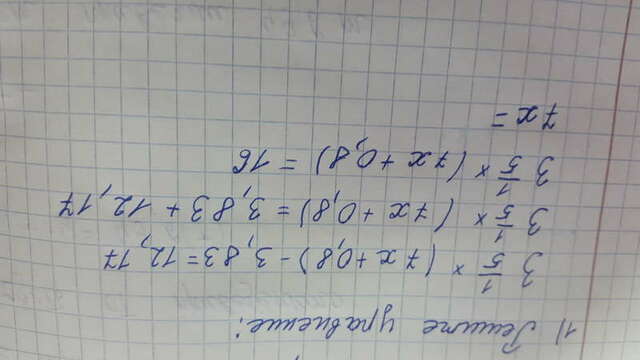 1) Решите уравнение:
3 1/5 × (7x + 0,8) - 3,83 = 12,17
3 1/5 × (7x + 0,8) = 3,83 + 12,17
3 1/5 × (7x + 0,8) = 16
7x =